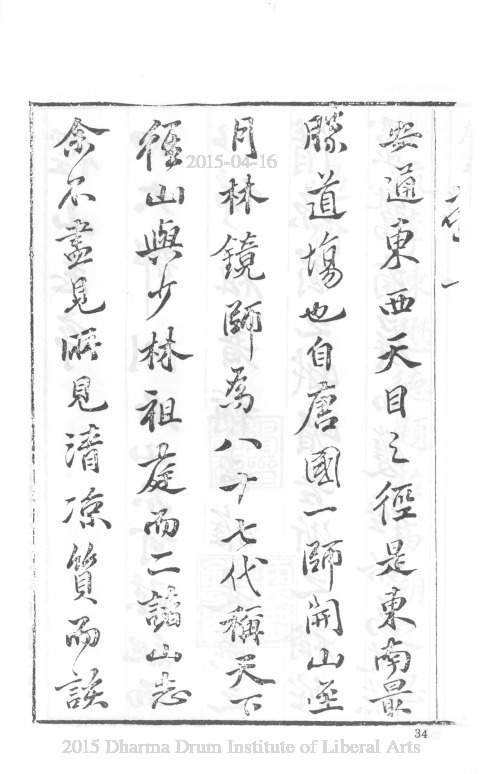 安通東西天目之徑是東南最
勝道場也自唐國一師開山至
月林鏡師為八十七代稱天下
徑山與少林祖庭而二諸山志
余不盡見所見清凉質而誤
2015-04-16
34
2015 Dharma Drum Institute of Liberal Arts